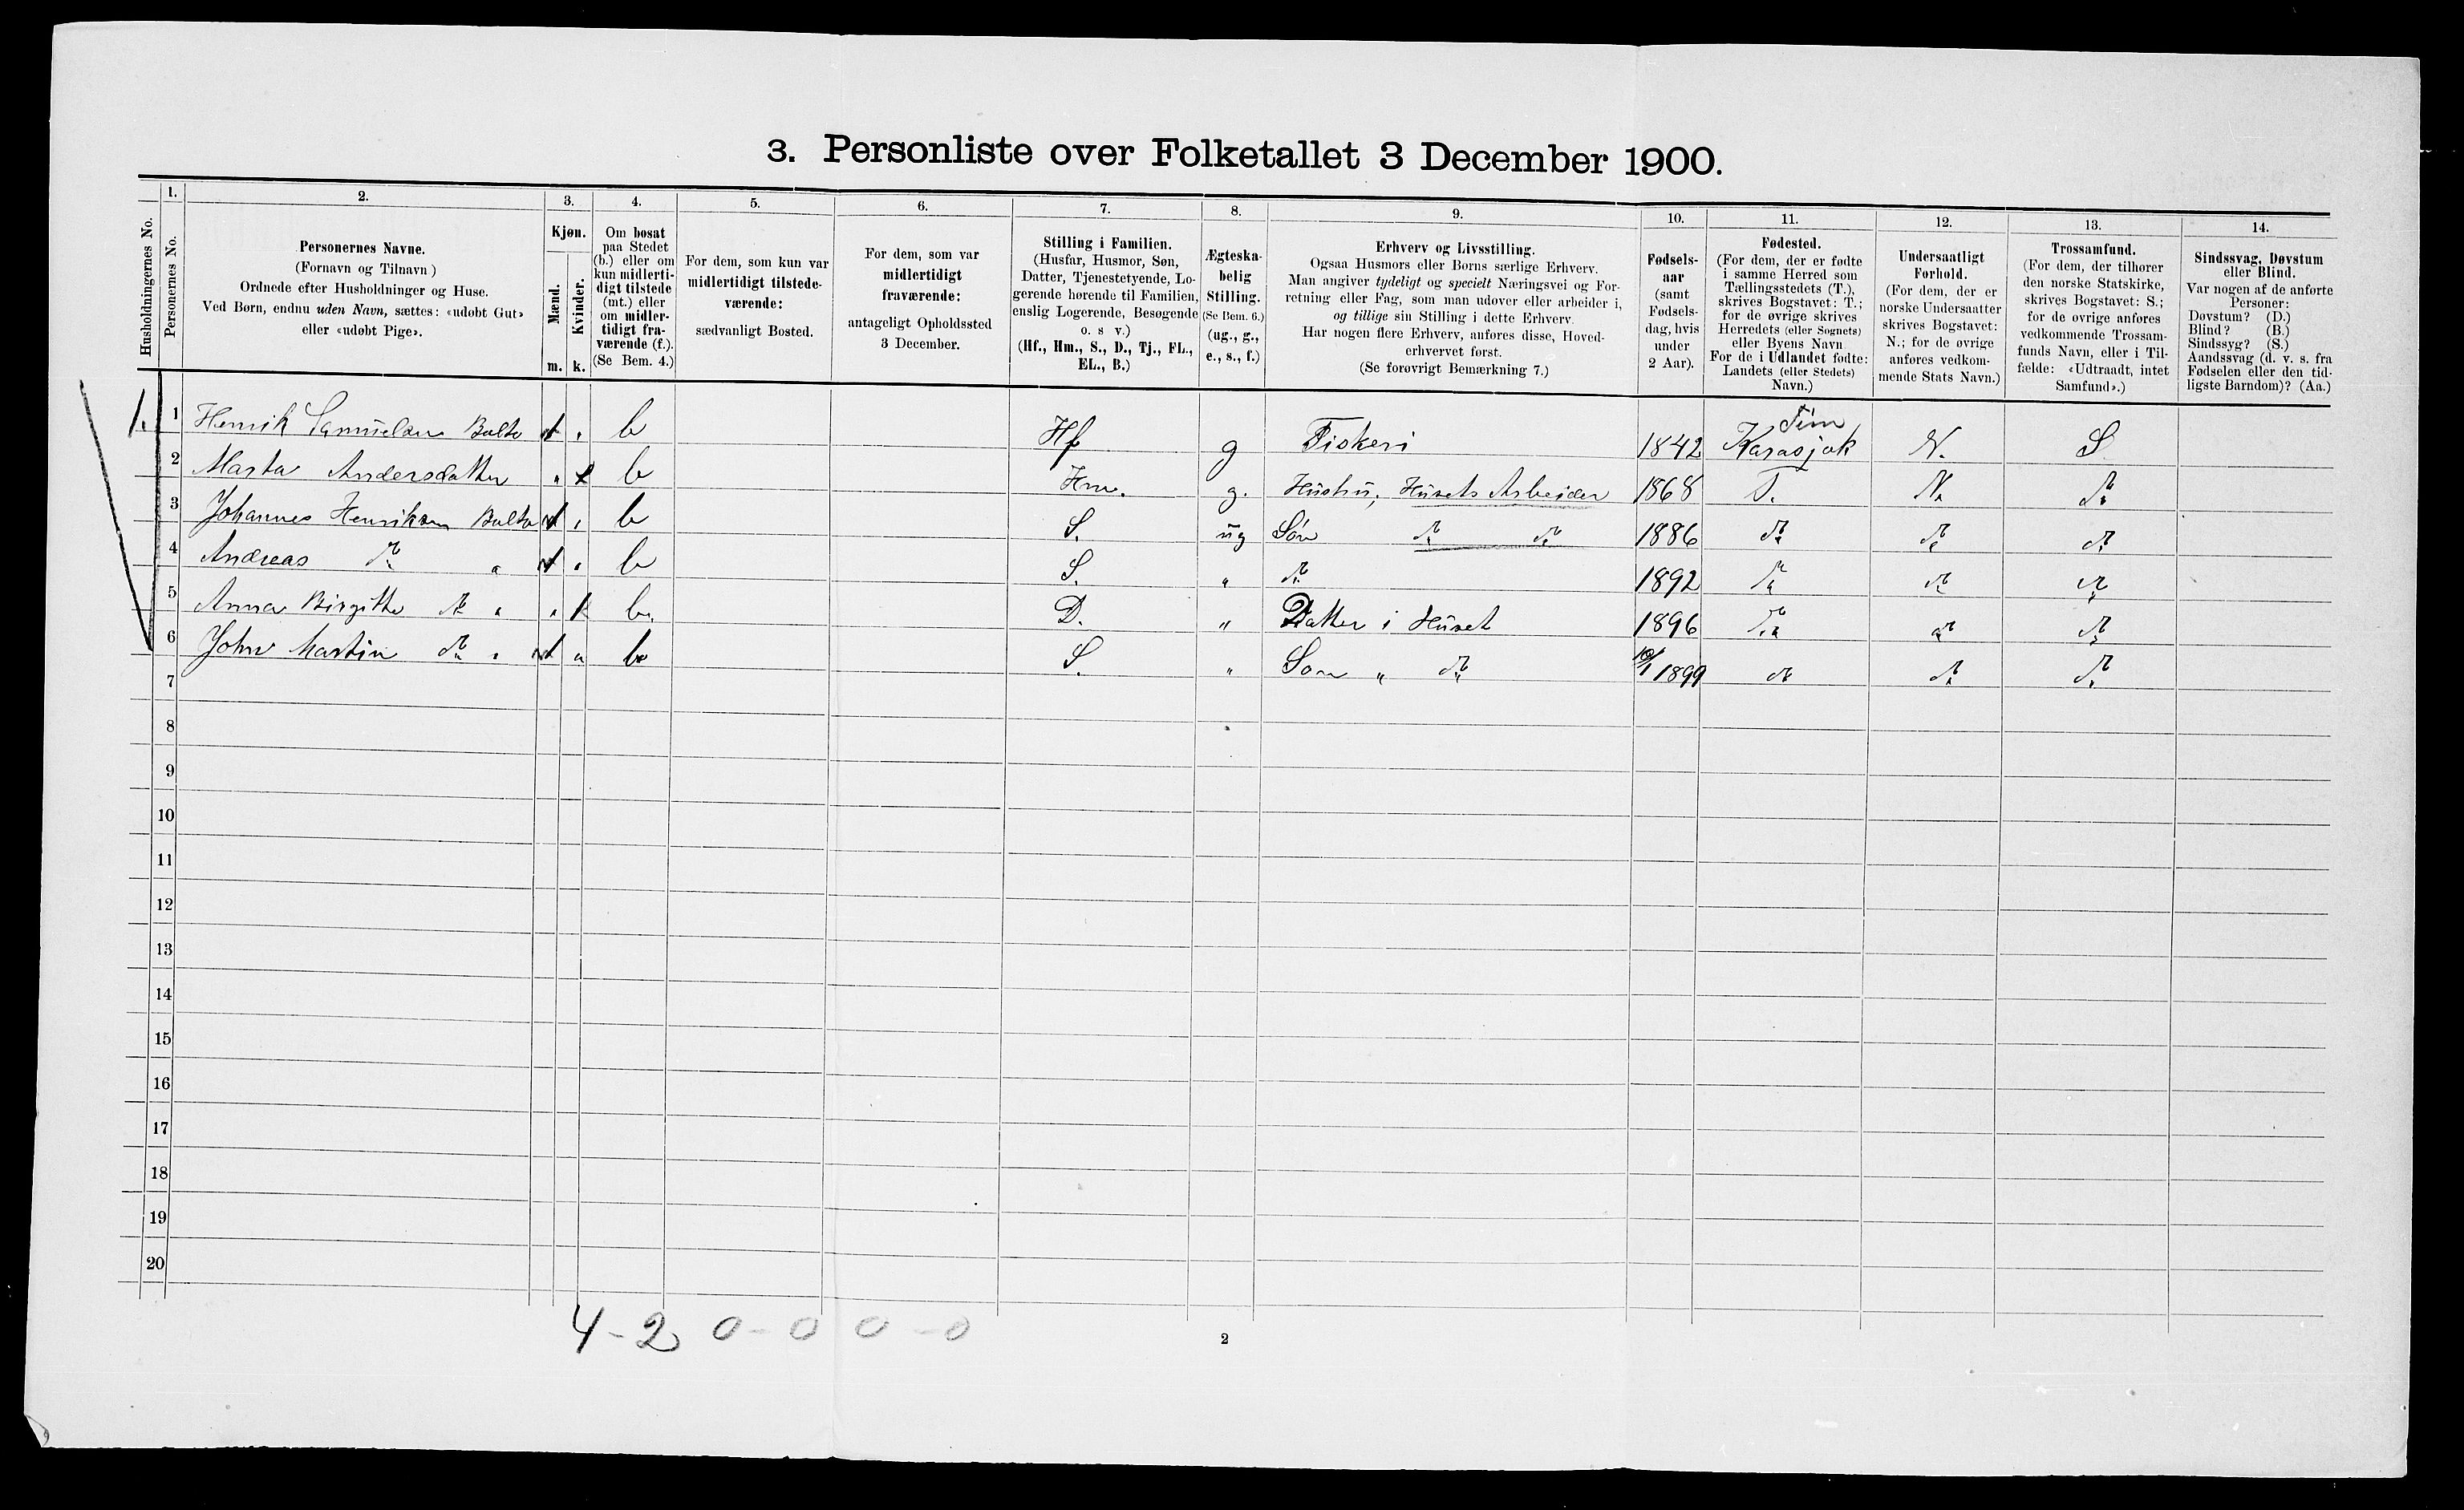 3. Personliste over Folketallet 3 December 1900.
Husholdningernes No.
1.
Personernes No.
2.
Personernes Navne.
(Fornavn og Tilnavn)
Ordnede efter Husholdninger og Huse.
Ved Børn, endnu uden Navn, sættes: «udøbt Gut»
eller «udøbt Pige».
3.
Kjøn.
Mænd.
Kvinder.
m. k.
4.
Om bosat
paa Stedet
(b.) eller om
kun midlerti-
digt tilstede
(mt.) eller
om midler-
tidigt fra-
værende (f.).
(Se Bem. 4.)
5.
For dem, som kun var
midlertidigt tilstede-
værende:
sædvanligt Bosted.
6.
For dem, som var
midlertidigt
fraværende:
antageligt Opholdssted
3 December.
7.
Stilling i Familien.
(Husfar, Husmor, Søn,
Datter, Tjenestetyende, Lo-
gerende hørende til Familien,
enslig Logerende, Besøgende
o. s v.)
(Hf., Hm., S., D., Tj., FL.,
EL., B.)
8.
Ægteska-
belig
Stilling.
(Se Bem. 6.)
(ug., g.,
e., s., f.)
9.
Erhverv og Livsstilling.
Ogsaa Husmors eller Børns særlige Erhverv.
Man angiver tydeligt og specielt Næringsvei og For-
retning eller Fag, som man udøver eller arbeider i,
og tillige sin Stilling i dette Erhverv.
Har nogen flere Erhverv, anføres disse, Hoved-
erhvervet først.
(Se forøvrigt Bemærkning 7.)
10.
Fødsels-
aar
(samt
Fødsels-
dag, hvis
under
2 Aar).
11.
Fødested.
(For dem, der er fødte
i samme Herred som
Tællingsstedets (T.),
skrives Bogstavet: T.;
for de øvrige skrives
Herredets (eller Sognets)
eller Byens Navn
For de i Udlandet fødte:
Landets (eller Stedets)
Navn.)
12.
Undersaatligt
Forhold.
(For dem, der er
norske Undersaatter
skrives Bogstavet:
N.; for de øvrige
anføres vedkom-
mende Stats Navn.)
13.
Trossamfund.
(For dem, der tilhører
den norske Statskirke,
skrives Bogstavet: S.;
for de øvrige anføres
vedkommende Trossam-
funds Navn, eller i Til-
fælde: «Udtraadt, intet
Samfund».)
14.
Sindssvag, Døvstum
eller Blind.
Var nogen af de anførte
Personer:
Døvstum? (D.)
Blind? (B.)
Sindssyg? (S.)
Aandssvag (d. v. s. fra
Fødselen eller den tid-
ligste Barndom)? (Aa.)
1. 1 Henrik Samuelsen Balto b Hf g Fiskeri 1842 Karasjok N. S
2 Marta Andersdatter " k b Hm. g. Hustru, Husets Arbeider 1868 T. N. do
3 Johannes Henriksen Balto " b S. ug Søn do do 1886 do do do
4 Andreas do " " b S. " do 1892 do do do
5 Anna Birgitte do " " k b. D. " Datter i Huset 1896 do do do
6 John Martin do " " b S. " Søn " do 1899 do do do
7
8
9
10
11
12
13
14
15
16
17
18
19
20
4 - 2 0 - 0 0 - 0
2